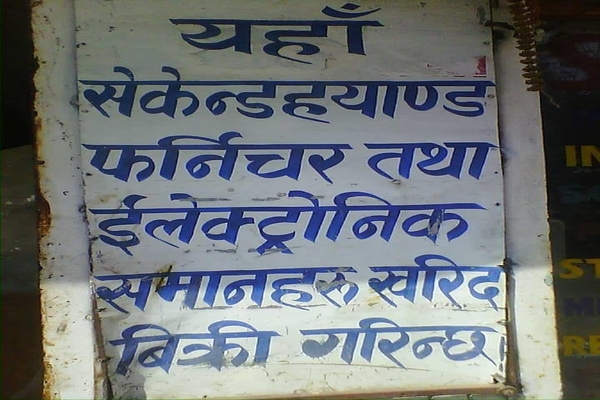 यहाँ
सेकेन्डहयाण्ड
फर्निचर तथा
ईलेक्ट्रोनिक
समानहरु खरिद
बिक्री गरिन्छ